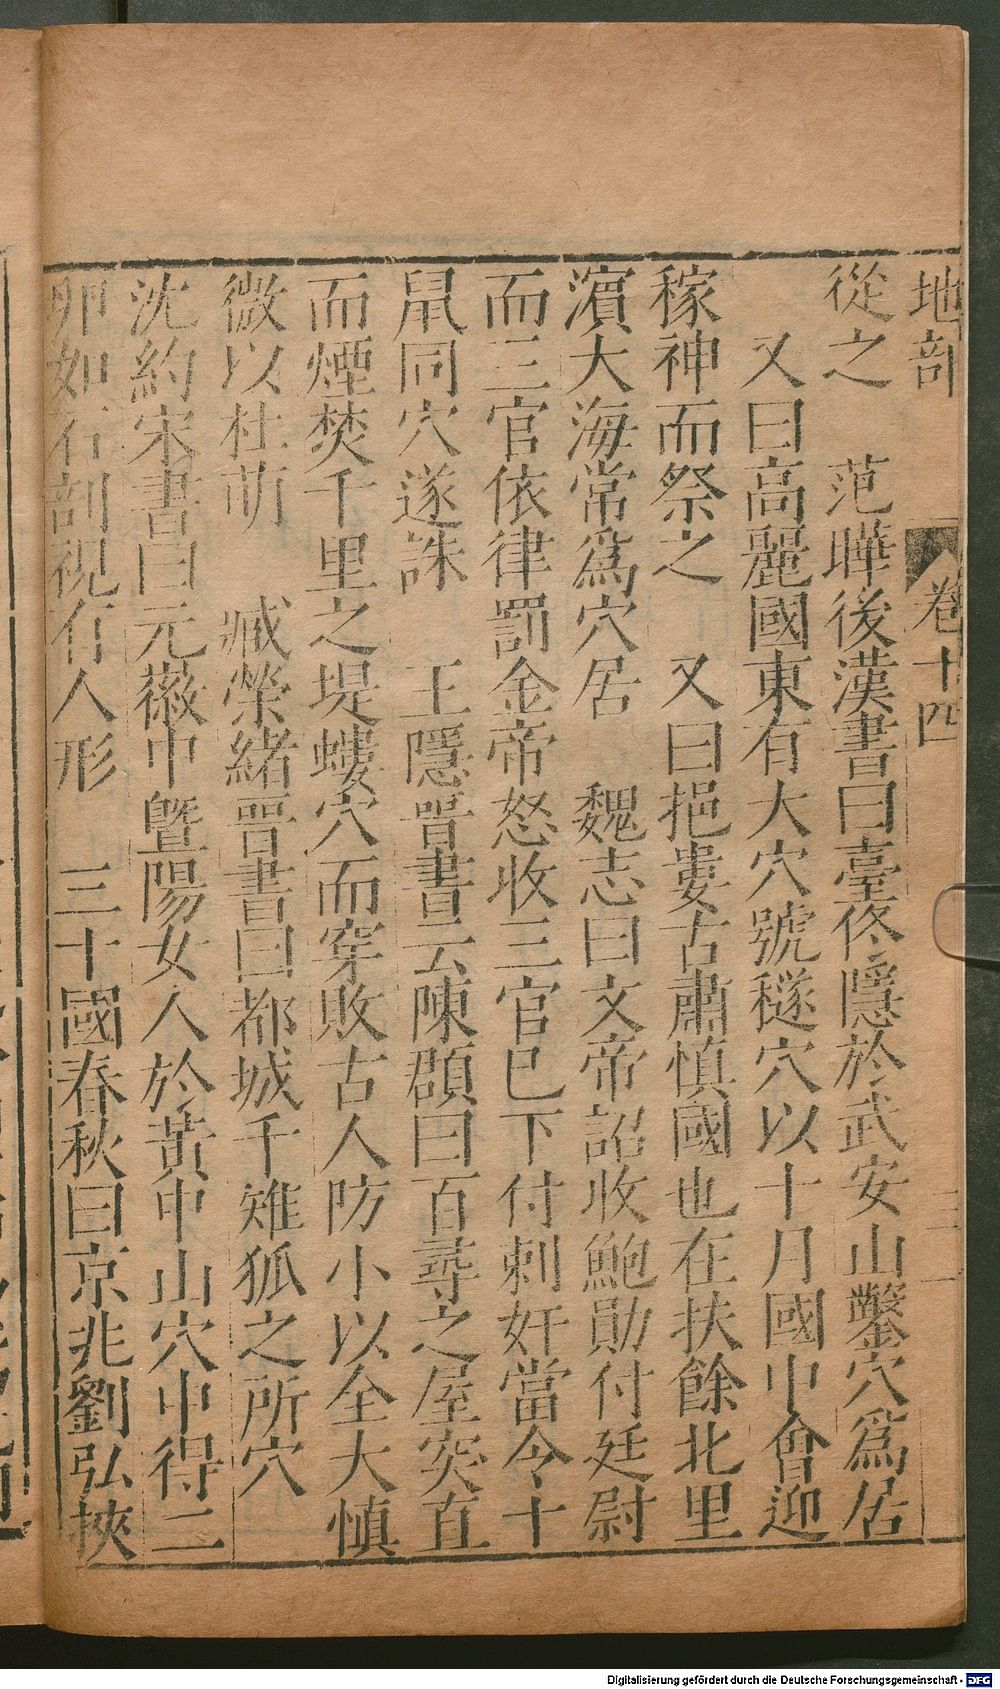 地部
卷十四
三一
從之　范曄後漢書曰臺佟隱於武安山鑿穴爲居
又曰高麗國東有大穴號檖穴以十月國中會迎
稼神而祭之　又曰挹婁古肅慎國也在扶餘北里
濵大海常爲穴居　魏志曰文帝詔收鮑勛付廷尉
而三官依律罰金帝怒收三官已下付刺奸當令十
鼠同穴遂誅　王隱晋書云陳頵曰百尋之屋突直
而煙焚千里之堤螻穴而穿敗古人防小以全大慎
微以杜萌　臧榮緒晋書曰都城千雉狐之所穴
沈約宋書曰元徽中曁陽女人於黃中山穴中得二
卵如石剖視有人形　三十國春秋曰京兆劉弘挾
Digitalisierung gefördert durch die Deutsche Forschungsgemeinschaft - DFG